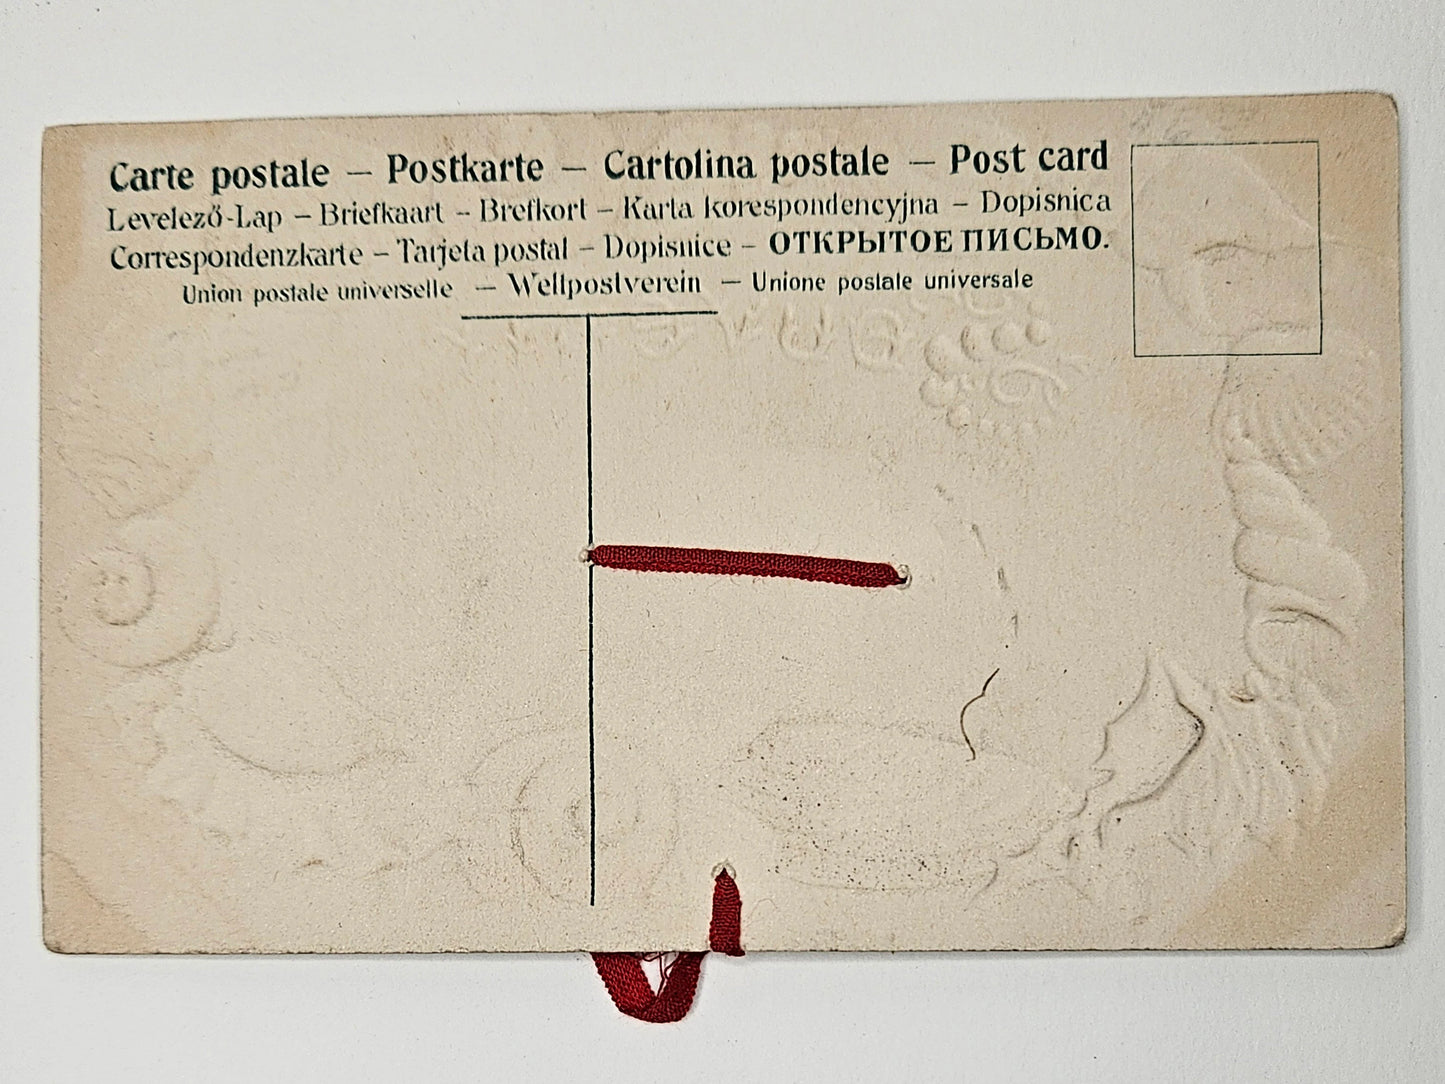 Carte postale – Postkarte – Cartolina postale – Post card
Levelező-Lap – Briefkaart – Brefkort – Karta korespondencyjna – Dopisnica
Correspondenzkarte – Tarjeta postal – Dopisnice – ОТКРЫТОЕ ПИСЬМО.
Union postale universelle – Weltpostverein – Unione postale universale